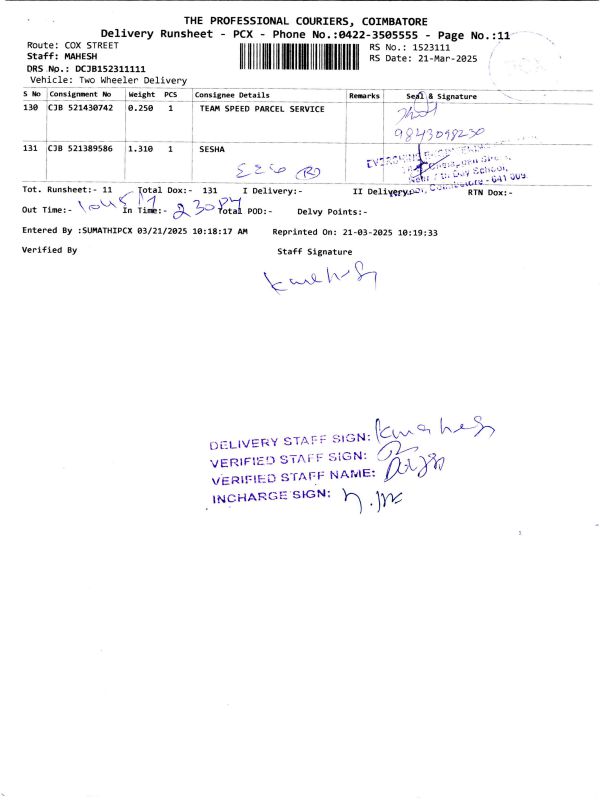 THE PROFESSIONAL COURIERS, COIMBATORE
Delivery Runsheet - PCX - Phone No.:0422-3505555 - Page No.:11
Route: COX STREET
RS No.: 1523111
Staff: MAHESH
RS Date: 21-Mar-2025
DRS No.: DCJB152311111
Vehicle: Two Wheeler Delivery
S No Consignment No Weight PCS Consignee Details Remarks Seal & Signature
130 CJB 521430742 0.250 1 TEAM SPEED PARCEL SERVICE
9843098230
131 CJB 521389586 1.310 1 SESHA
Tot. Runsheet:- 11 Total Dox:- 131 I Delivery:- II Delivery:- RTN Dox:-
Out Time:- In Time:- Total POD:- Delvy Points:-
Entered By :SUMATHIPCX 03/21/2025 10:18:17 AM Reprinted On: 21-03-2025 10:19:33
Verified By Staff Signature
DELIVERY STAFF SIGN:
VERIFIED STAFF SIGN:
VERIFIED STAFF NAME:
INCHARGE SIGN: